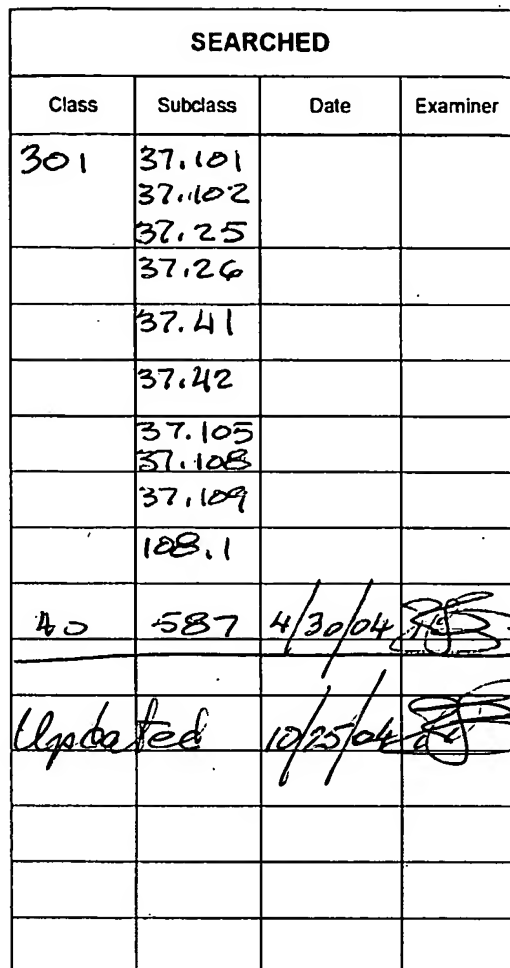 SEARCHED
Class Subclass Date Examiner
301 37.101
37.102
37.25
37.26
37.41
37.42
37.105
37.108
37.109
108.1
40 587 4/30/04
Updated 10/25/04